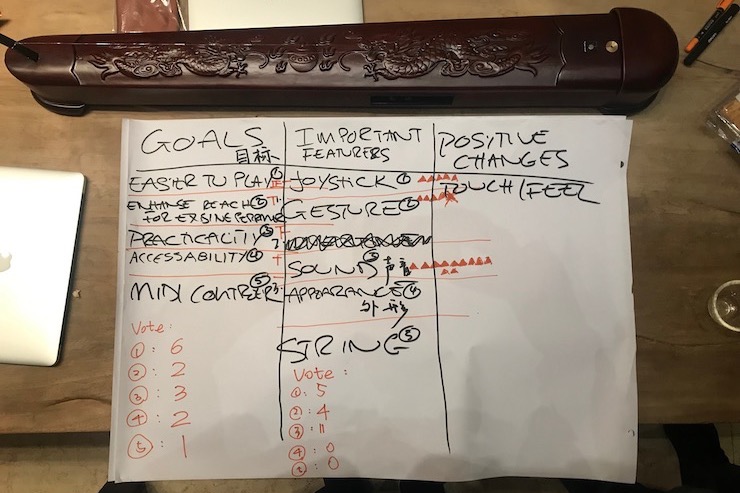 GOALS
目标
EASIER TO PLAY ①
ENHANSE REACH ②
FOR EXSINE
PRACTICALITY ③
ACCESSABILITY ④
MIDI ⑤
Vote:
①: 6
②: 2
③: 3
④: 2
⑤: 1
IMPORTANT
FEATURERS
JOYSTICK ①
GESTURE ②
SOUND ③ 声音
APPEARANCE ④
外形
STRING ⑤
Vote:
①: 5
②: 4
③: 11
④: 0
⑤: 0
POSITIVE
CHANGES
TOUCH/FEEL